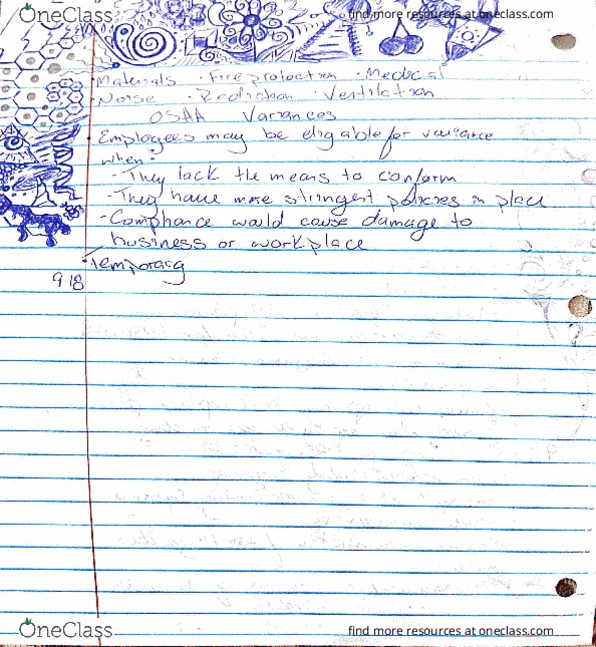 OneClass
find more resources at oneclass.com
Materials · Fire protection · Medical
Noise · Radiation · Ventilation
OSHA Variances
· Employees may be eligable for variance
when:
- They lack the means to conform
- They have more stringent policies in place
- Compliance would cause damage to
business or workplace
· Temporary
918
OneClass
find more resources at oneclass.com